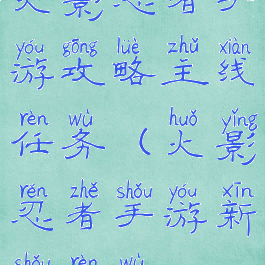 火影忍者手
yóu gōng lüè zhǔ xiàn
游攻略主线
rèn wù huǒ yǐng
任务（火影
rěn zhě shǒu yóu xīn
忍者手游新
shǒu rèn wù